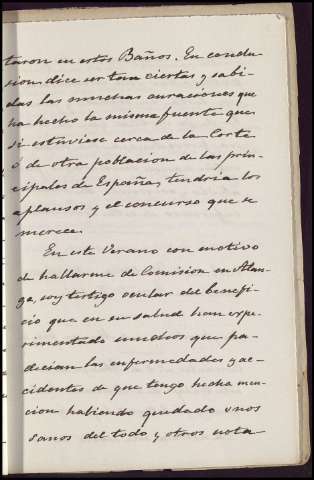 taron en estos Baños. En conclu-
sion dice ser tan ciertas y sabi-
das las muchas curaciones que
ha hecho la misma fuente que
si estuviese cerca de la Corte
ó de otra poblacion de las prin-
cipales de España, tendria los
aplausos y el concurso que se
merece.
En este Verano con motivo
de hallarme de Comision en Alan-
ge, soy testigo ocular del benefi-
cio que en su salud han espe-
rimentado muchos que pa-
decian las enfermedades y ac-
cidentes de que tengo hecha men-
cion habiendo quedado unos
sanos del todo y otros nota-